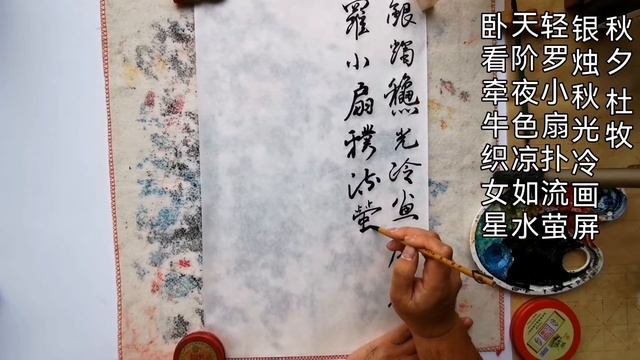 秋夕 杜牧
银烛秋光冷画屏
轻罗小扇扑流萤
天阶夜色凉如水
卧看牵牛织女星
銀燭龝光冷畫
羅小扇撲流螢